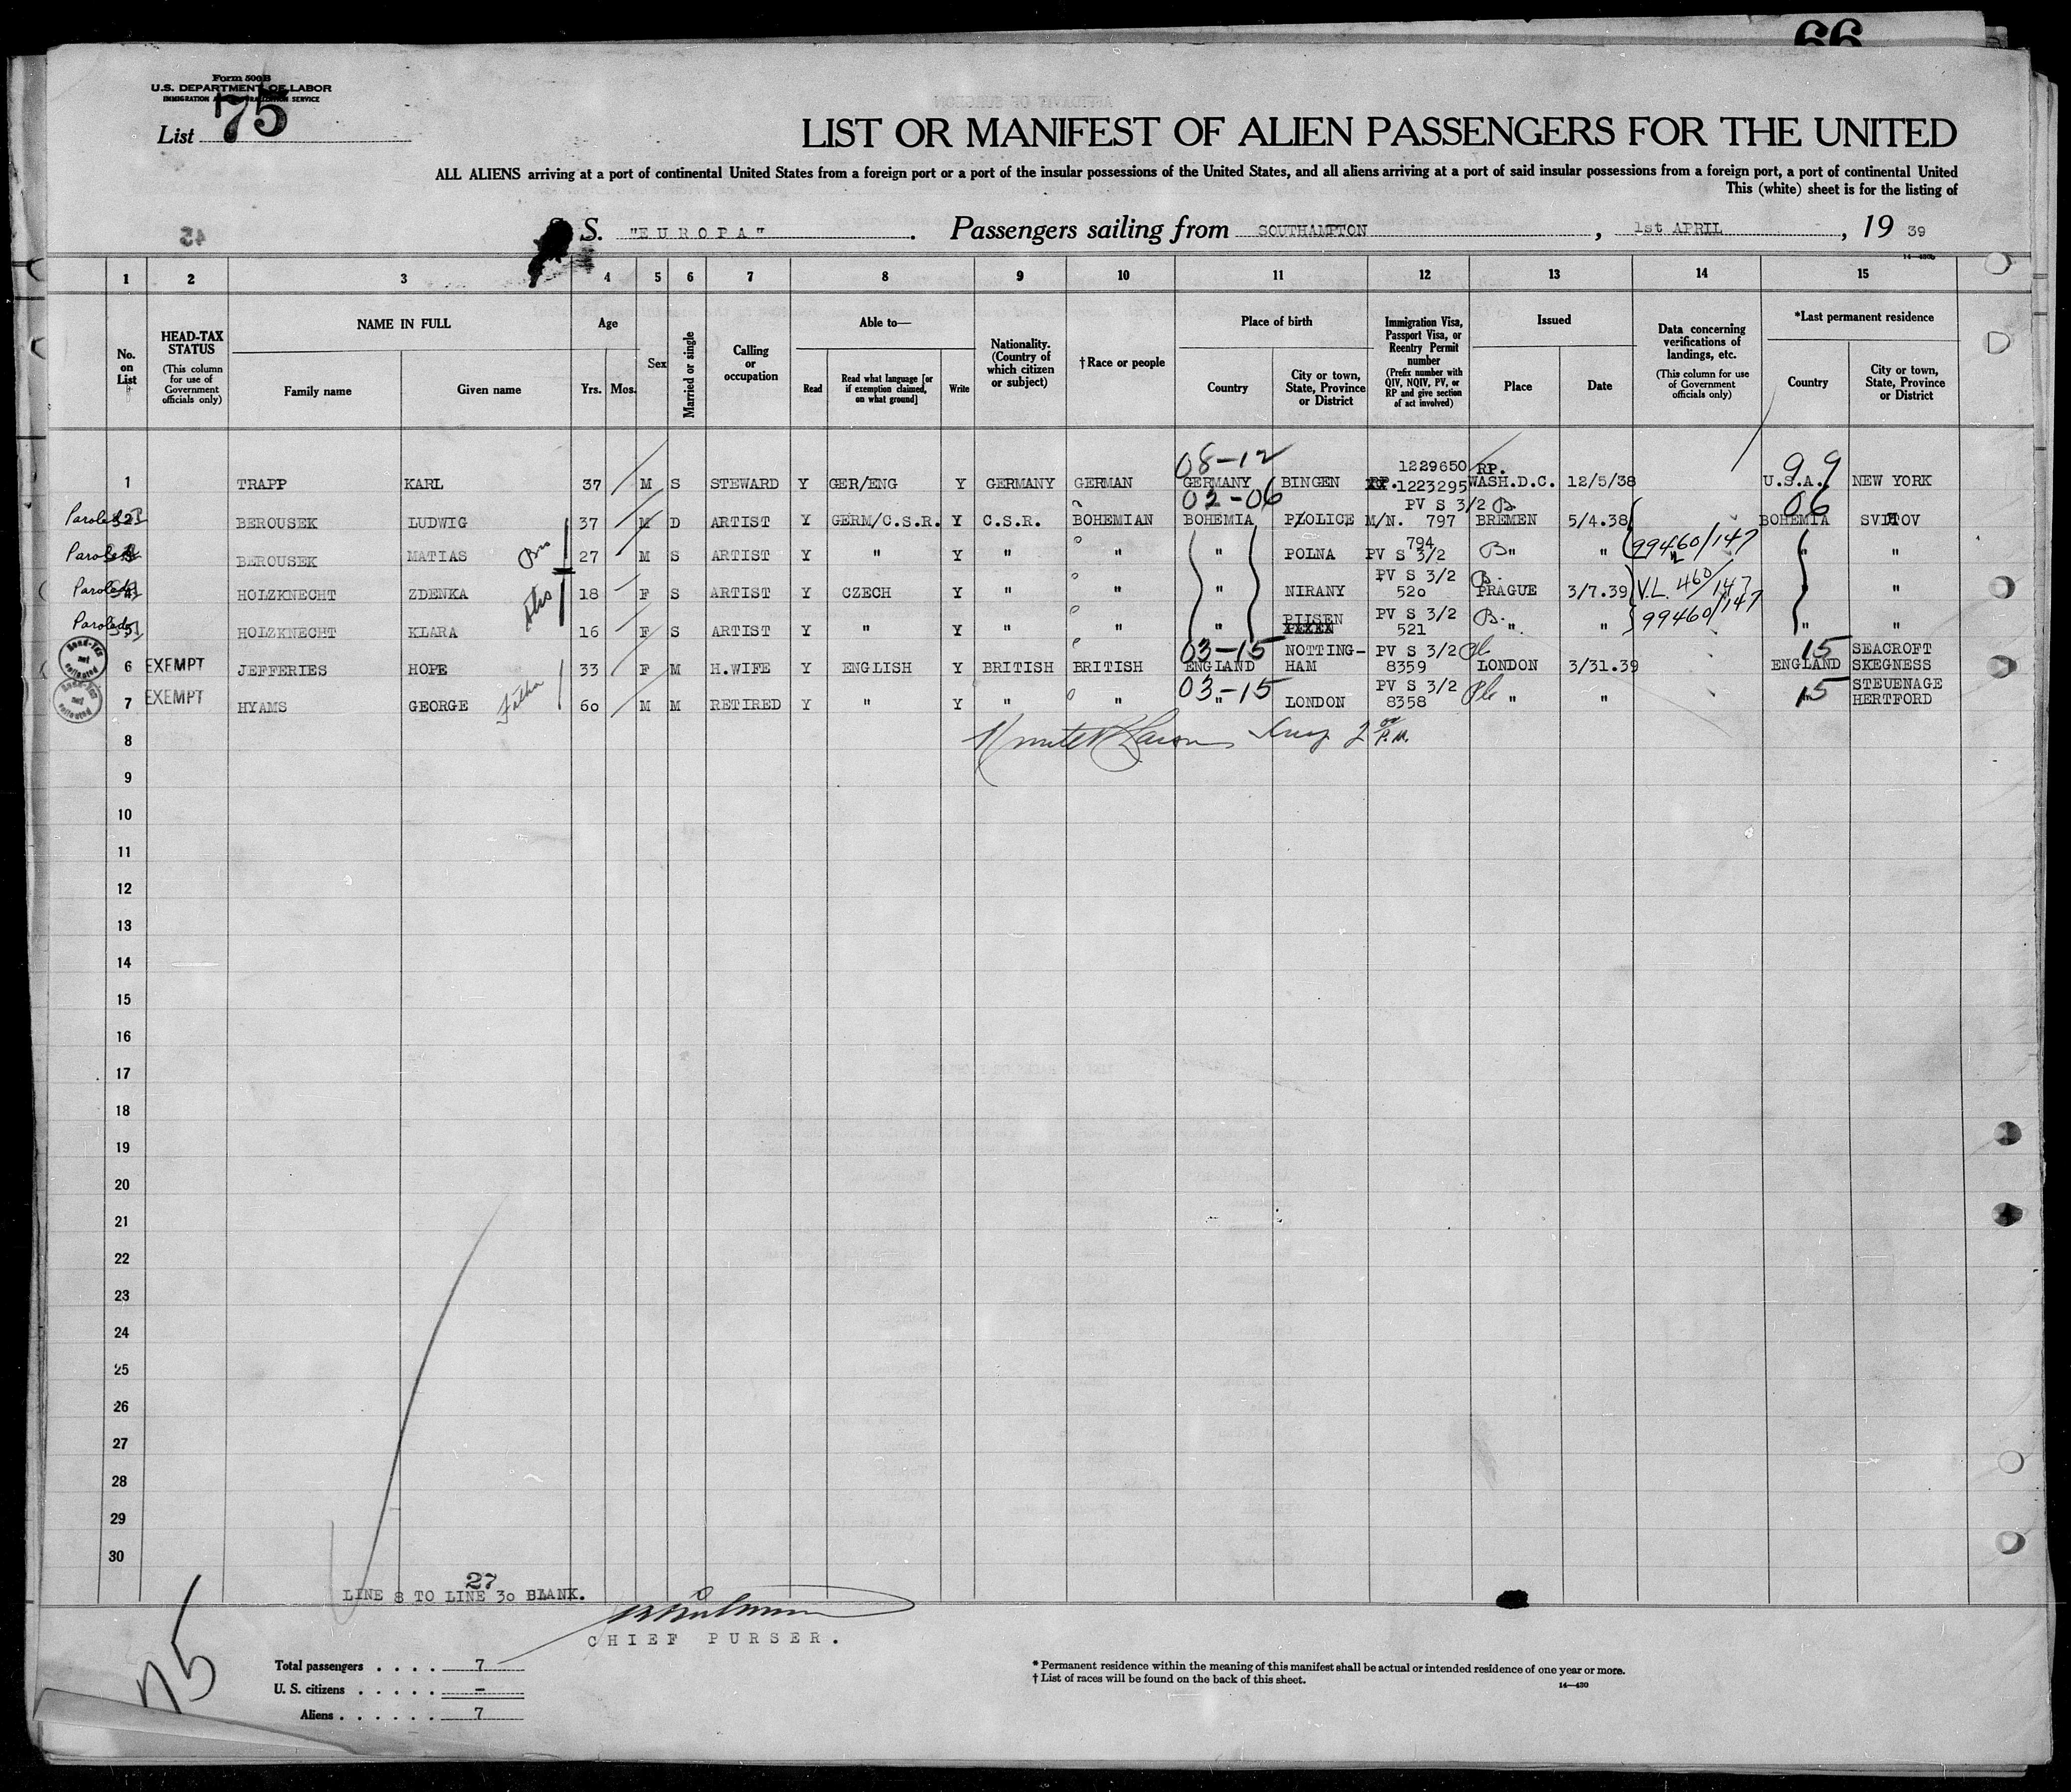 66
Form 500B
U.S. DEPARTMENT OF LABOR
IMMIGRATION AND NATURALIZATION SERVICE
List 75
LIST OR MANIFEST OF ALIEN PASSENGERS FOR THE UNITED
ALL ALIENS arriving at a port of continental United States from a foreign port or a port of the insular possessions of the United States, and all aliens arriving at a port of said insular possessions from a foreign port, a port of continental United
This (white) sheet is for the listing of
S. "EUROPA" . Passengers sailing from SOUTHAMPTON , 1st APRIL , 19 39
14—430b
1 2 3 4 5 6 7 8 9 10 11 12 13 14 15
No. on List
HEAD-TAX STATUS (This column for use of Government officials only)
NAME IN FULL
Family name Given name
Age
Yrs. Mos.
Sex
Married or single
Calling or occupation
Able to—
Read Read what language [or if exemption claimed, on what ground] Write
Nationality. (Country of which citizen or subject)
†Race or people
Place of birth
Country City or town, State, Province or District
Immigration Visa, Passport Visa, or Reentry Permit number (Prefix number with QIV, NQIV, PV, or RP and give section of act involved)
Issued
Place Date
Data concerning verifications of landings, etc. (This column for use of Government officials only)
*Last permanent residence
Country City or town, State, Province or District
08-12 1229650 RP. 99
1 TRAPP KARL 37 M S STEWARD Y GER/ENG Y GERMANY GERMAN GERMANY BINGEN RP.1223295 WASH.D.C. 12/5/38 U.S.A. NEW YORK
02-06 PV S 3/2 B 06
Paroled BEROUSEK LUDWIG 37 M D ARTIST Y GERM/C.S.R. Y C.S.R. BOHEMIAN BOHEMIA M/N. 797 BREMEN 5/4.38 BOHEMIA
794
Paroled BEROUSEK MATIAS Bro 27 M S ARTIST Y " Y " " " POLNA PV S 3/2 B " " 99460/147 " "
PV S 3/2 B.
Paroled HOLZKNECHT ZDENKA 18 F S ARTIST Y CZECH Y " " " NIRANY 520 PRAGUE 3/7.39 V.L. 460/147 " "
PIISEN PV S 3/2 B.
Paroled HOLZKNECHT KLARA 16 F S ARTIST Y " Y " " " 521 " " 99460/147 " "
Head-Tax not collected
03-15 NOTTING- PV S 3/2 15 SEACROFT
6 EXEMPT JEFFERIES HOPE 33 F M H.WIFE Y ENGLISH Y BRITISH BRITISH ENGLAND HAM 8359 LONDON 3/31.39 ENGLAND SKEGNESS
Head-Tax not collected
03-15 PV S 3/2 15 STEUENAGE
7 EXEMPT HYAMS GEORGE Father 60 M M RETIRED Y " Y " " " LONDON 8358 " " " HERTFORD
8
9
10
11
12
13
14
15
16
17
18
19
20
21
22
23
24
25
26
27
28
29
30
27
LINE 8 TO LINE 30 BLANK.
CHIEF PURSER.
75
Total passengers . . . . 7
U. S. citizens . . . . . –
Aliens . . . . . . 7
* Permanent residence within the meaning of this manifest shall be actual or intended residence of one year or more.
† List of races will be found on the back of this sheet.
14—430